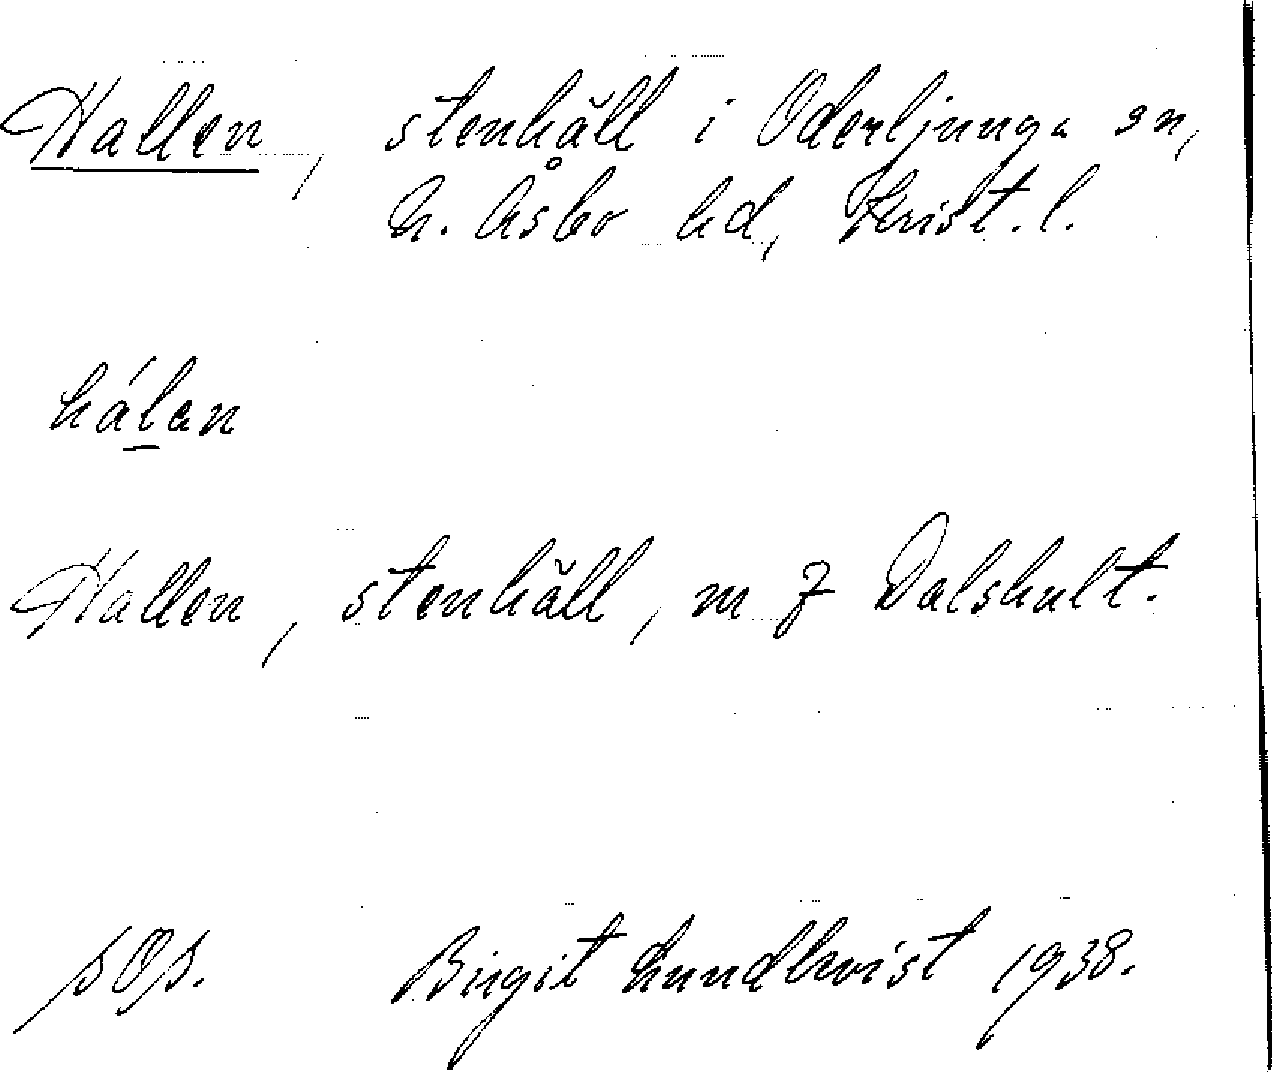 Hallen, stenhäll i Oderljunga sn,
N. Åsbo hd, Krist. l.
hálan
Hallen, stenhäll, m Z Dalshult.
sOs. Birgit Lundkvist 1938.